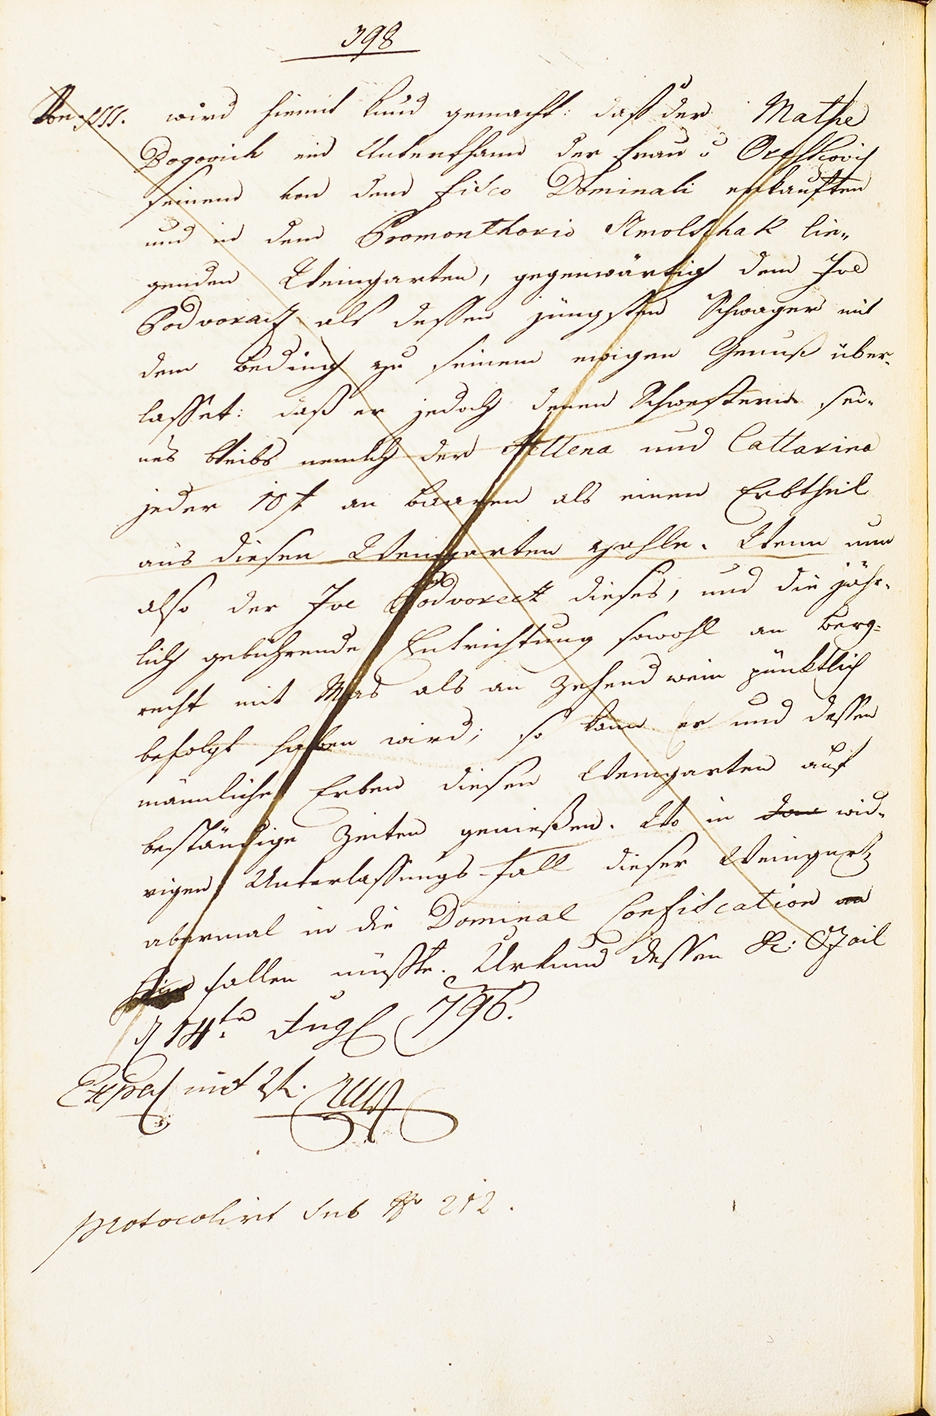 398
Von JSS. wird hiemit kund gemacht: daß der Mathe
Bogovich ein Unterthann der Frau v Oreskovich
seinem von dem Fisco Dominali erkauften
und in dem Promonthorio Smolschak lie„
genden Weingarten, gegenwärtig dem Ive
Podvorach als dessen jüngsten Schwager mit
dem Beding zu seinem ewigen Genuß über„
lasset: daß er jedoch denen Schwesterin sei„
nes Weibs nemlich der Hellena und Cattarina
jeder 10 f an baaren als einen Erbtheil
aus diesen Weingarten zahle. Wenn nun
also der Ive Podvoreck dieses, und die jähr„
lich gebührende Entrichtung sowohl an Berg„
recht mit Mas als an Zehend wein pünktlich
befolgt haben wird; so kann er und dessen
männliche Erben diesen Weingarten auf
beständige Zeiten genießen. Wo in wid„
rigen Unterlassungs-Fall dieser Weingartz
abermal in die Dominal Confiscation
fallen müßte. Urkund dessen
d 14tn Aug 796.
Exped mit 2 f.
Protocolirt sub No 212.